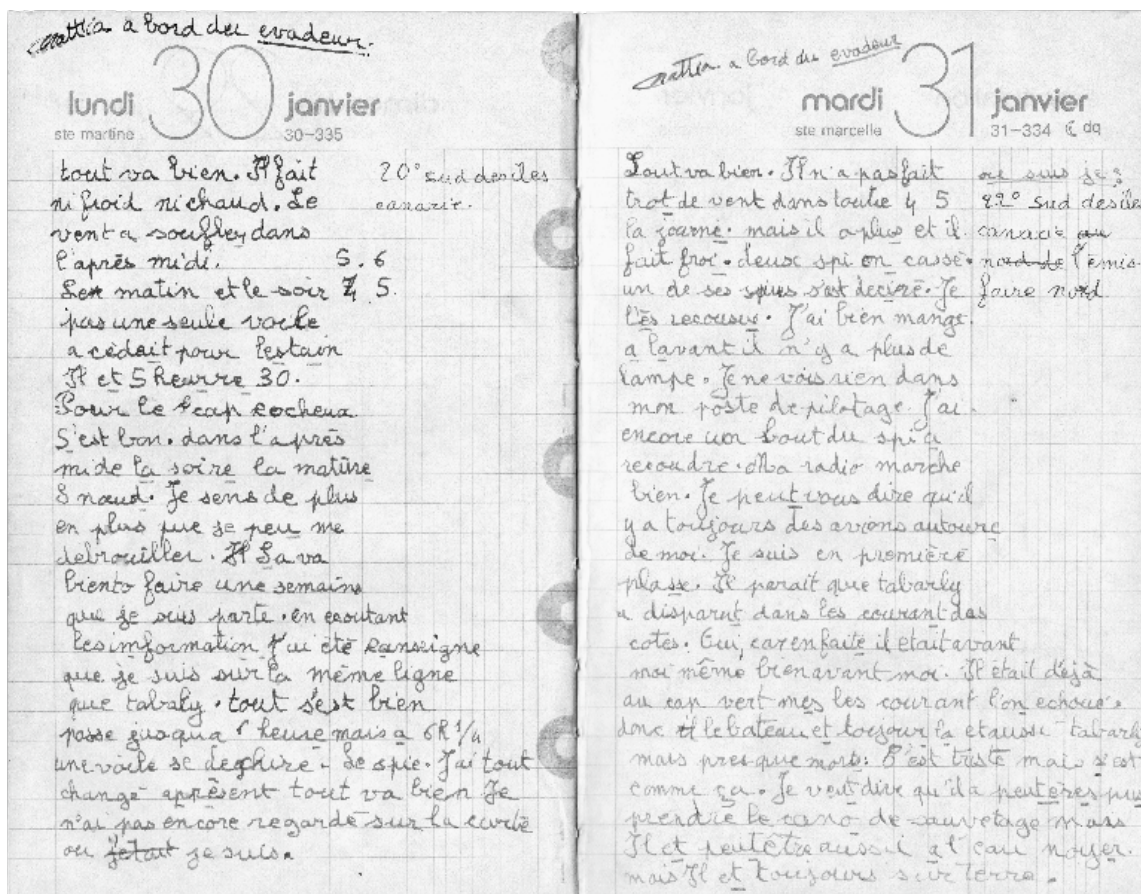 mattia a bord du evadeur.
lundi 30 janvier
ste martine 30-335
tout va bien. Il fait 20° sud des iles
ni froid ni chaud. Le canarie.
vent a soufley dans
l'après midi. 5. 6
Le matin et le soir 4 5.
pas une seule voile
a cédait pour lestain
Il et 5 heurre 30.
Pour le cap rocheua
S'est bon. dans l'après
mi de la soire la matûre
8 nœud. Je sens de plus
en plus que je peu me
debrouiller. Il Sa va
biento faire une semains
que je suis parte. en ecoutant
les information j'ai été ranseigne
que je suis sur la même ligne
que tabaly. tout s'est bien
passe jusqua 6 heure mais a 6h 1/4
une voile se deghire. Le spie. J'ai tout
change aprèsent tout va bien Je
n'ai pas encore regardé sur la carte
ou jetait je suis.
mattia a bord du evadeur
mardi 31 janvier
ste marcelle 31-334 dq
Tout va bien. Il n'a pas fait ou suis je?
trot de vent dans toutie 4 5 22° sud des iles
la journe. mais il a plus et il canarie au
fait froi. deux spi on casse. nord de l'emis
un de ses spies s'est deciré. Je faire nord
l'ès recousu. J'ai bien mangé.
a lavant il n'y a plus de
lampe. Je ne vois rien dans
mon poste de pilotage. J'ai
encore un bout du spi a
recoudre. Ma radio marche
bien. Je peut vous dire qu'il
y a toujours des avions autoure
de moi. Je suis en première
plasse. Il parait que tabarly
a disparut dans les courant das
cotes. Oui, car en faite il etait avant
moi même bien avant moi. Il était déjà
au cap vert mes les courant l'on echoué.
donc le bateau et toujour la et aussi tabarl
mais presque mort. C'est triste mais s'est
comme ça. Je veut dire qu'il a peutères pus
prendre le cano de sauvetage mais
Il et peutêtre aussi a l'eau noyer.
mais Il et toujours sur terre.